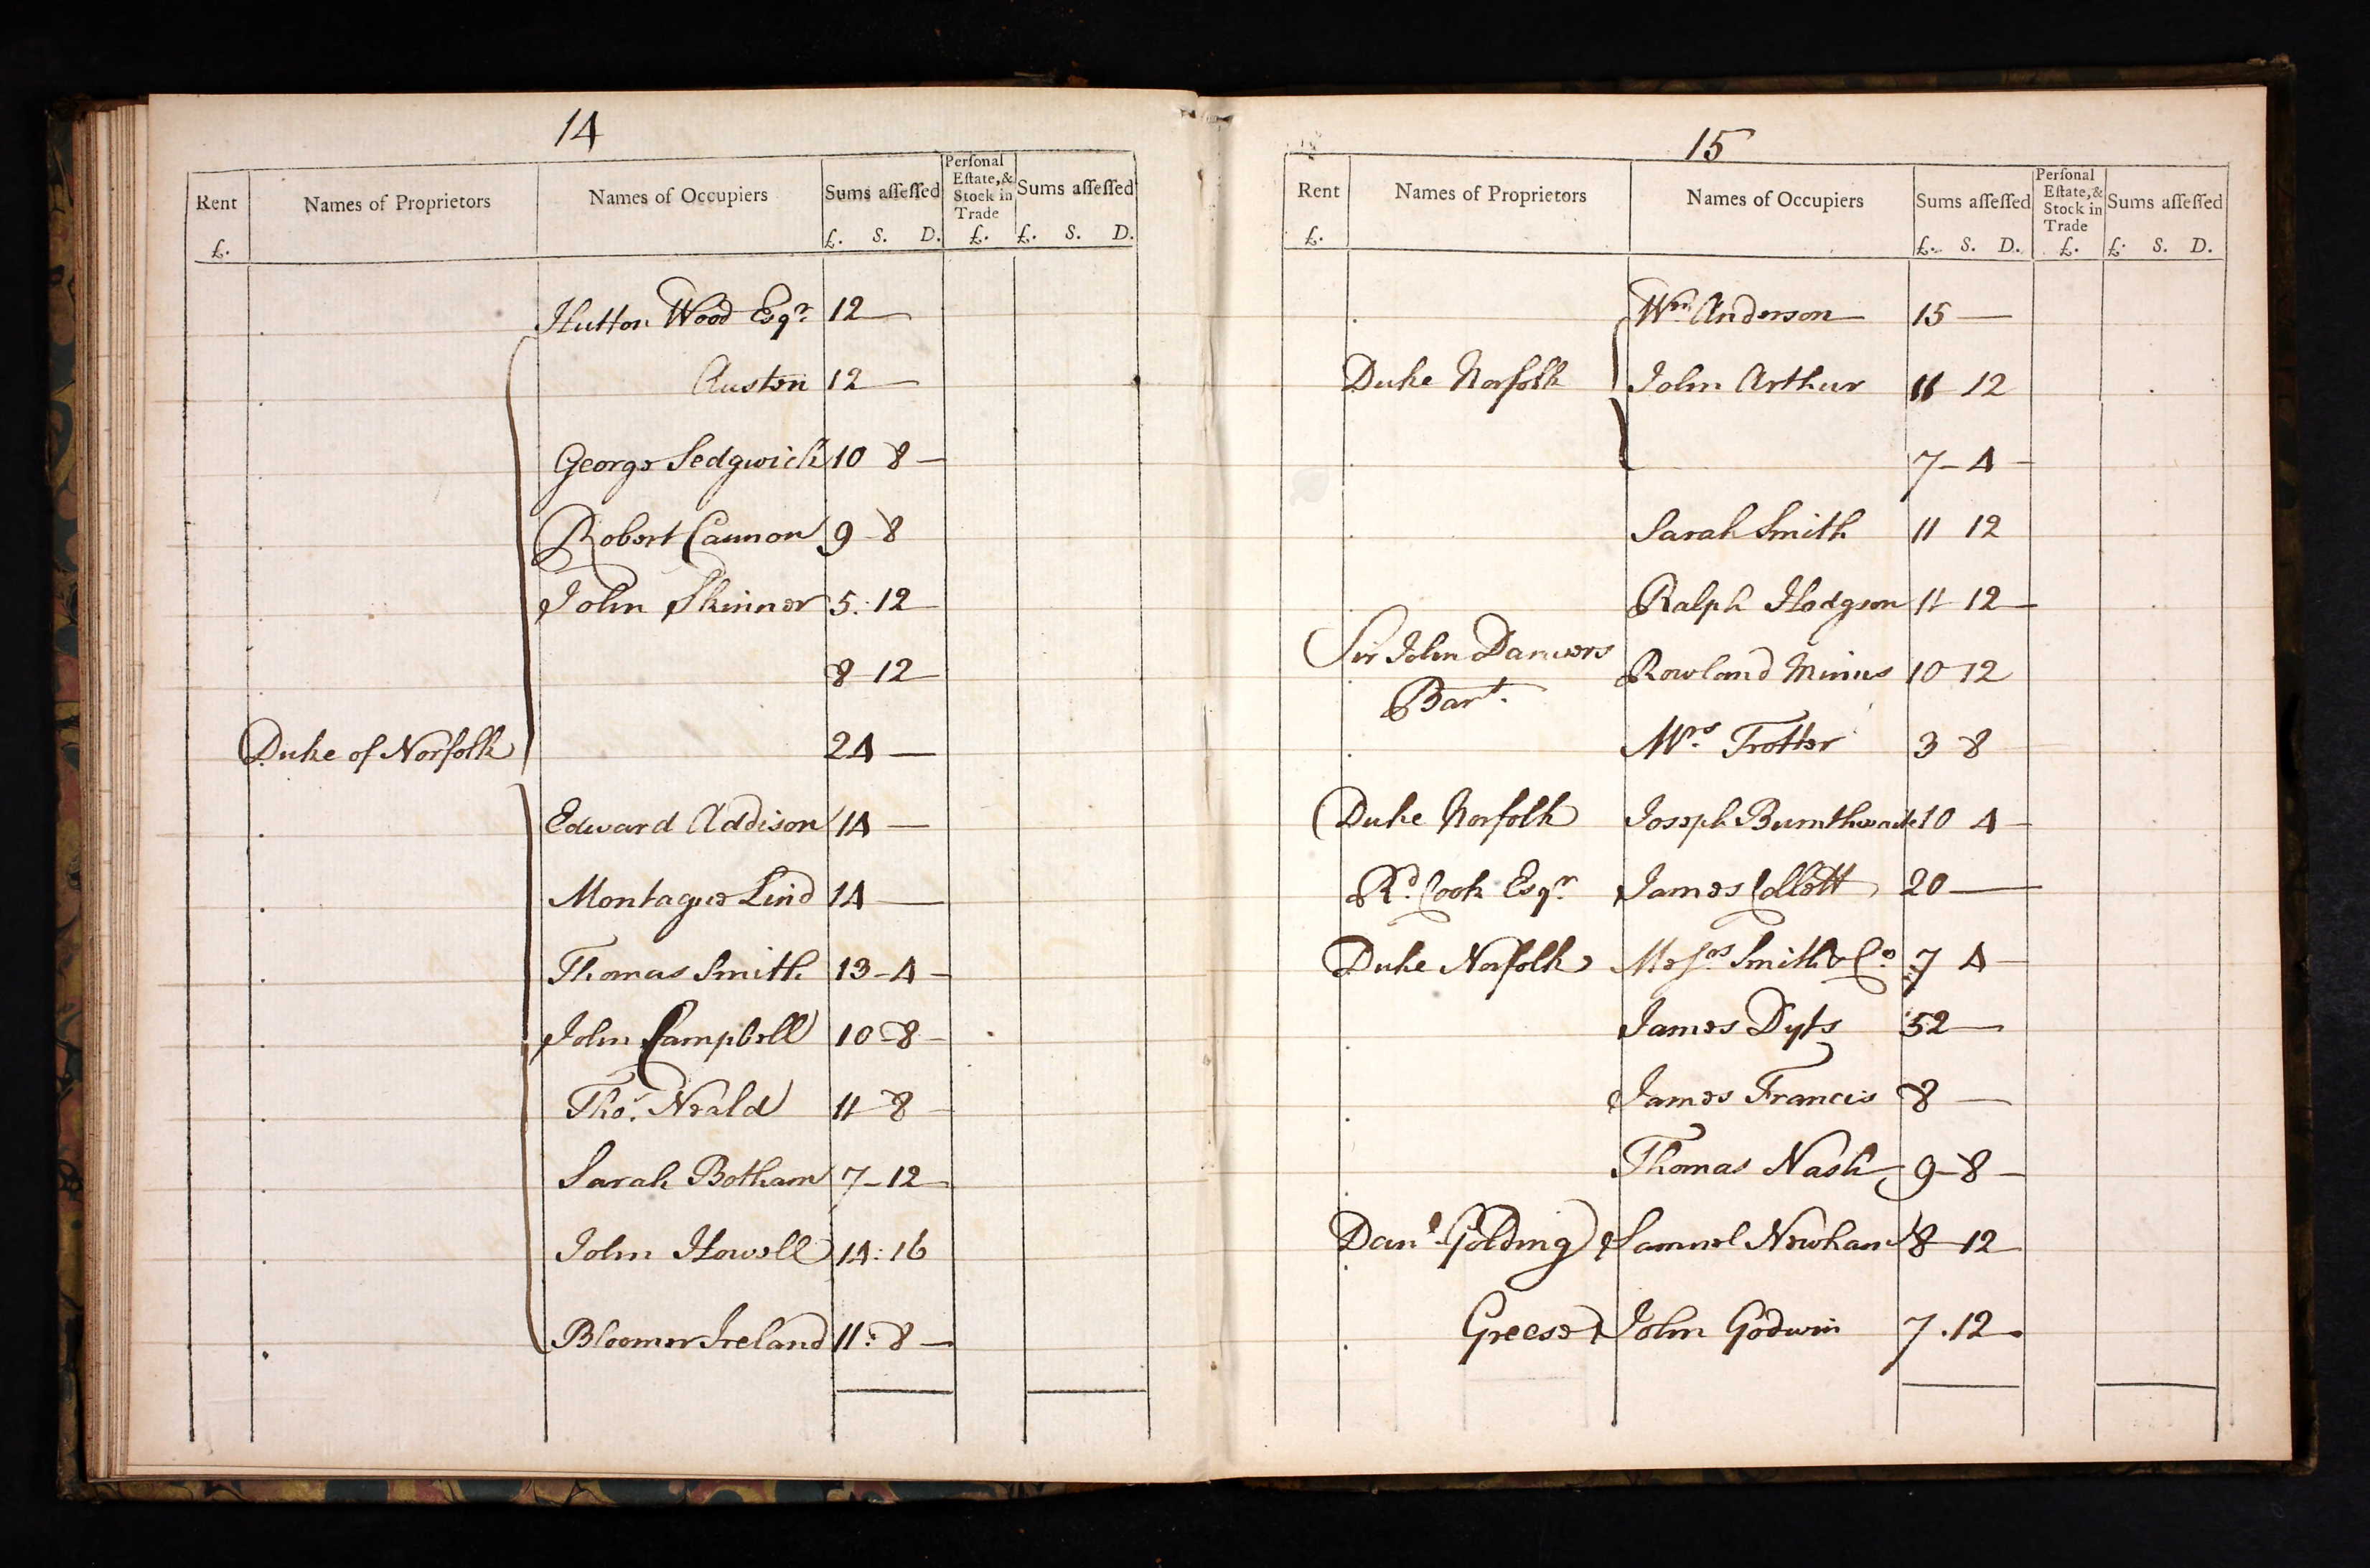 14
Rent £.
Names of Proprietors
Names of Occupiers
Sums aſſeſſed £. S. D.
Perſonal Eſtate, & Stock in Trade £.
Sums aſſeſſed £. S. D.
Hutton Wood Esqr. 12 —
Austen 12 —
George Sedgwick 10 8 —
Robert Cannon 9 8
John Skinner 5:12
8 12
Duke of Norfolk 24 —
Edward Addison 14 —
Montague Lind 14 —
Thomas Smith 13-4-
John Campbell 10-8-
Thos. Neald 11-8-
Sarah Botham 7-12
John Howell 14:16
Bloomer Ireland 11:8-
15
Rent £.
Names of Proprietors
Names of Occupiers
Sums aſſeſſed £. S. D.
Perſonal Eſtate, & Stock in Trade £.
Sums aſſeſſed £. S. D.
Wm. Anderson 15 —
Duke Norfolk John Arthur 11 12
7-4-
Sarah Smith 11 12
Ralph Hodgson 11 12
Sir John Danvers Bart. Rowland Minns 10 12
Mrs. Trotter 3 8
Duke Norfolk Joseph 10 4
Rd. Cook Esqr. James Collett 20 —
Duke Norfolk Messrs. Smith & Co. 7 4
James 52 —
James Francis 8 —
Thomas Nash 9-8-
Danl. Golding Samuel Newham 8 12
Greese John Godwin 7.12